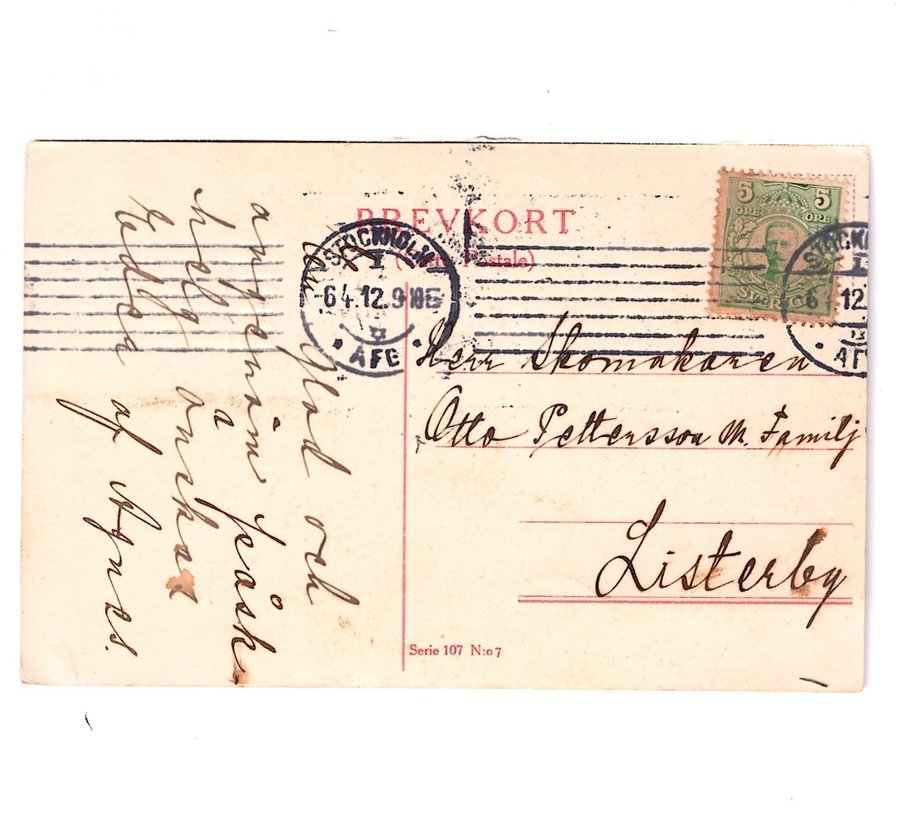 BREVKORT
(Carte Postale)
5 5
ÖRE ÖRE
SVERIGE
STOCKHOLM
1
6 4.12.9
AFG
STOCK
1
6 12
AF
Herr Skomakaren
Otto Pettersson m. Familj
Listerby
Serie 107 N:o 7
Glad och
angenäm påsk
helg önskas
Eder af Agnes.